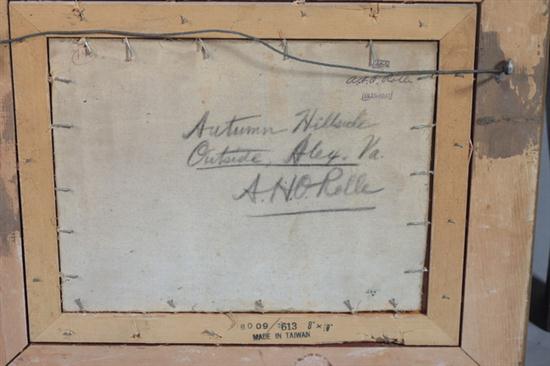 A.H.O. Rolle
Autumn Hillside
Outside, Alex. Va.
A.H.O. Rolle
8009/613 8" x 10"
MADE IN TAIWAN